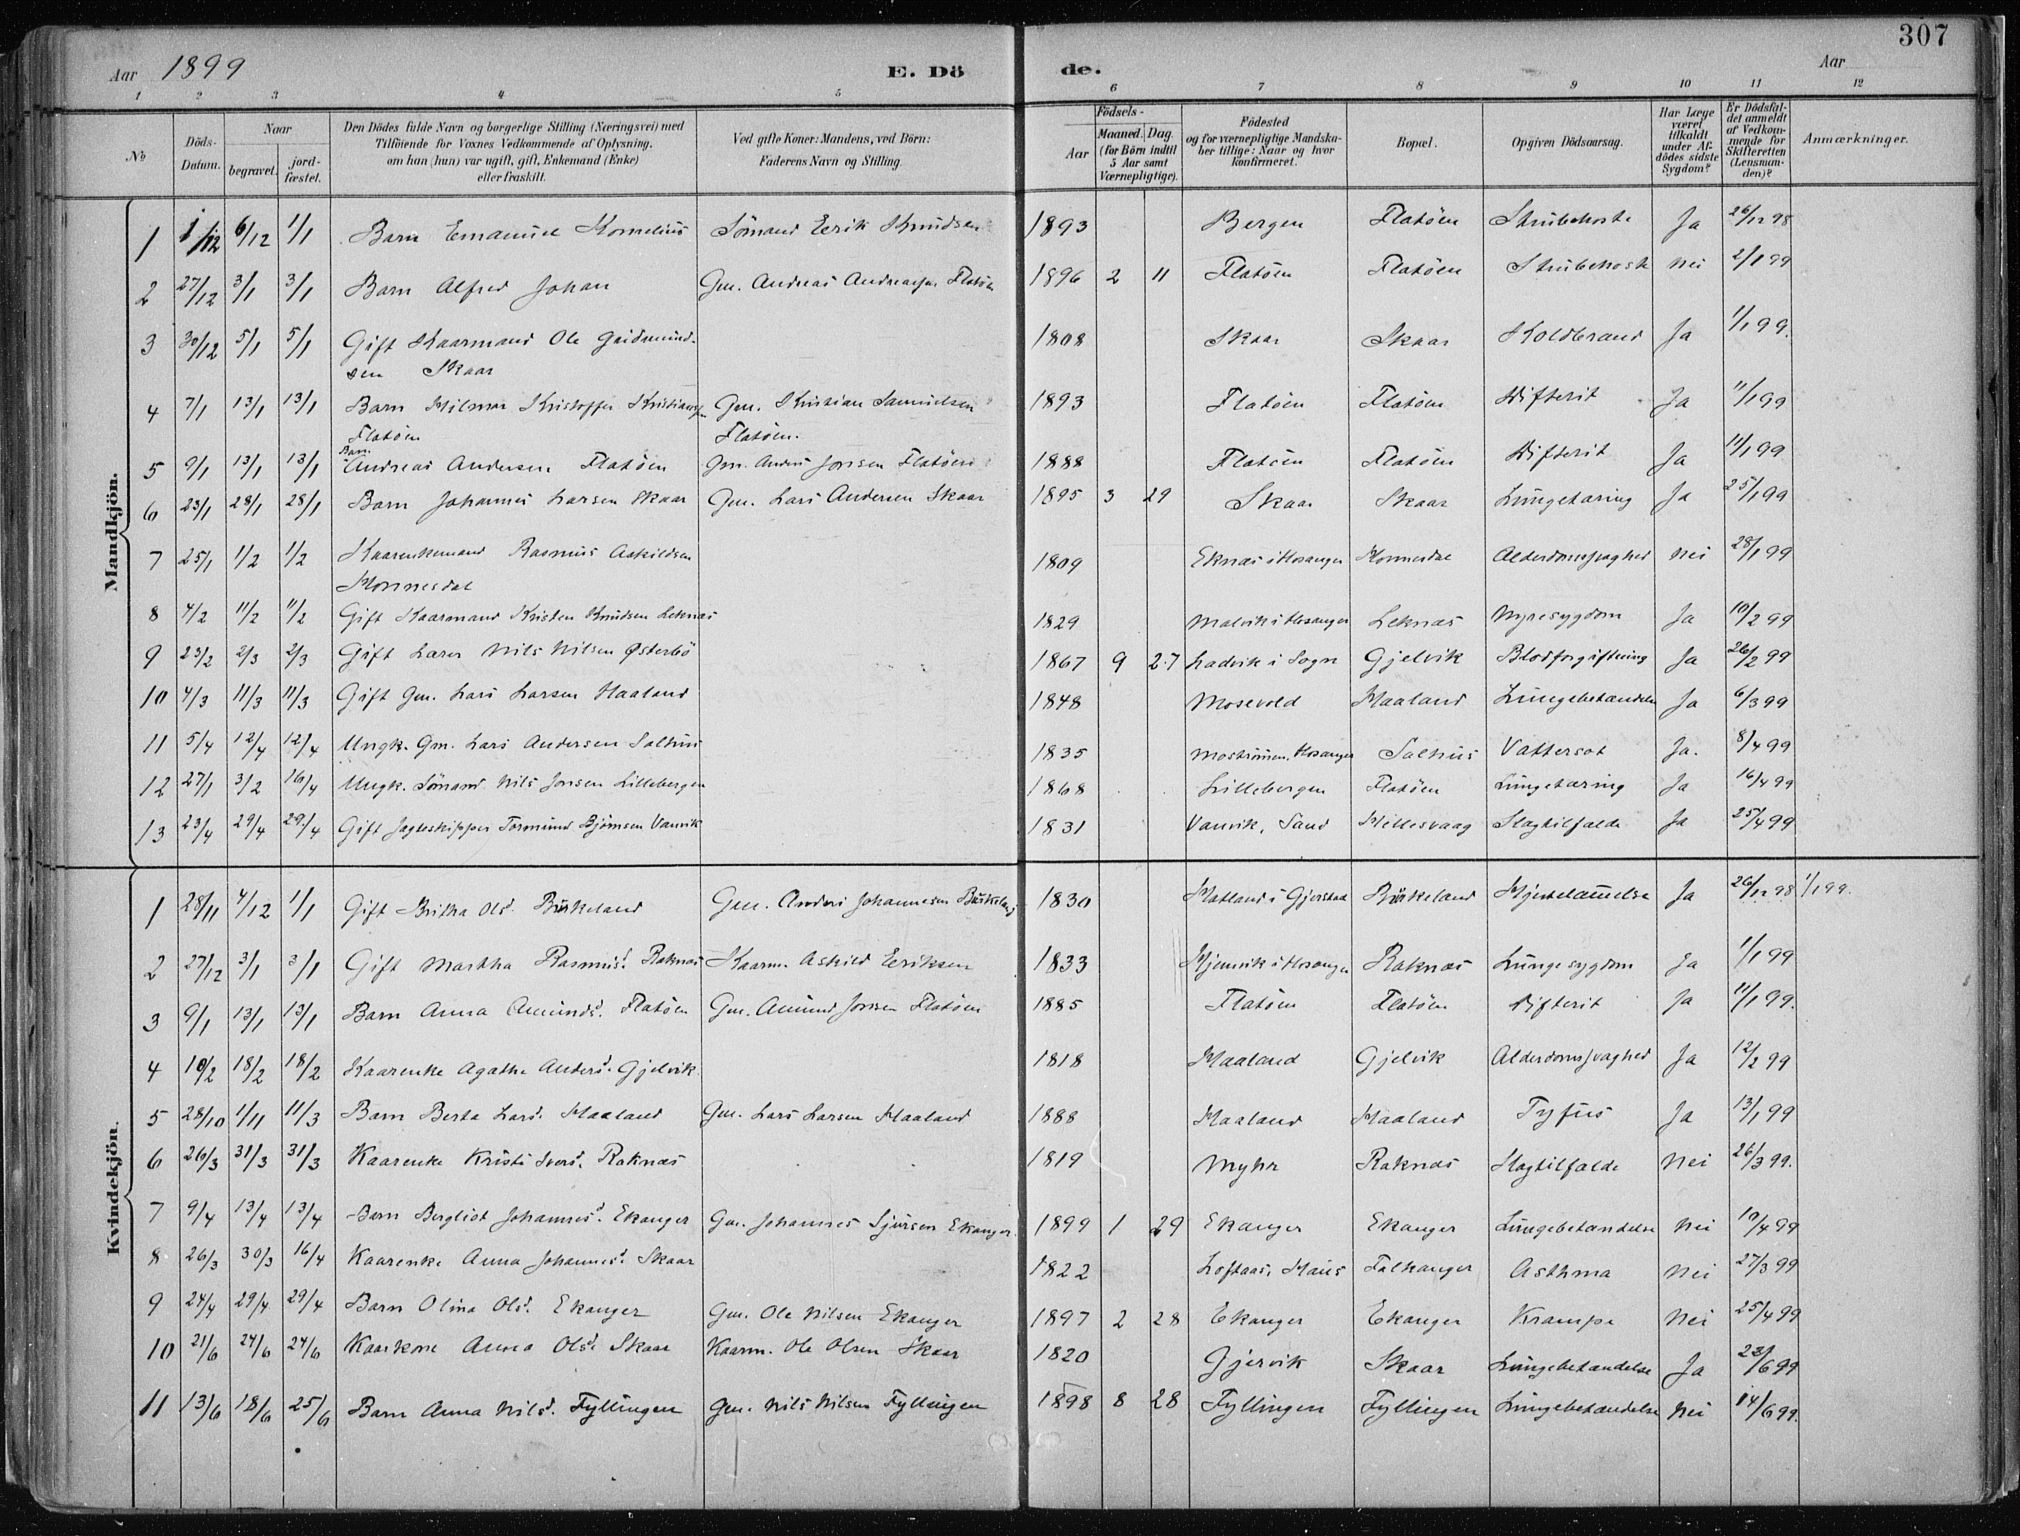 307
Aar 1899 E. Dö de. Aar
1 2 3 4 5 6 7 8 9 10 11 12
No Döds-Datum. Naar begravet. jord-fæstet. Den Dödes fulde Navn og borgerlige Stilling (Næringsvei) med Tilföiende for Voxnes Vedkommende af Oplysning, om han (hun) var ugift, gift, Enkemand (Enke) eller fraskilt. Ved gifte Koner: Mandens, ved Börn: Faderens Navn og Stilling. Födsels- Aar Maaned. Dag. (for Börn indtil 5 Aar samt Værnepligtige). Födested og for værnepligtige Mandska-ber tillige: Naar og hvor konfirmeret. Bopæl. Opgiven Dödsaarsag. Har Læge været tilkaldt under Af-dödes sidste Sygdom? Er Dödsfal-det anmeldt af Vedkom-mende for Skifteretten (Lensman-den)? Anmærkninger.
Mandkjön.
1 1/12 6/12 1/1 Barn Emanuel Kornelius Sömand Eerik Knudsen 1893 Bergen Flatöen Strubehoste Ja 26/12 98
2 27/12 3/1 3/1 Barn Alfred Johan Gm. Andreas Andreasen Flatöen 1896 2 11 Flatöen Flatöen Strubehoste Nei 2/1 99
3 30/12 5/1 5/1 Gift Kaarmand Ole Gudmund-
sen Skaar 1808 Skaar Skaar Koldbrand Ja 1/1 99.
4 7/1 13/1 13/1 Barn Hilmar Kristoffer Kristiansen Gm. Kristian Samuelsen 1893 Flatöen Flatöen Difterit Ja 11/1 99
Flatöen Flatöen.
5 9/1 13/1 13/1 Barn Andreas Andersen Flatöen Gm. Anders Jonsen Flatöen 1888 Flatöen Flatöen Difterit Ja 11/1 99
6 23/1 28/1 28/1 Barn Johannes Larsen Skaar Gm. Lars Andersen Skaar 1895 3 29 Skaar Skaar Lungetæring Ja 25/1 99
7 25/1 1/2 1/2 Kaarenkemand Rasmus Askildsen 1809 Eknæs i Hosanger Konnesdal Alderdomssvaghed Nei 28/1 99
Konnesdal
8 4/2 11/2 11/2 Gift Kaarmand Kristen Knudsen Leknæs 1829 Malvik i Hosanger Leknæs Nyresygdom Ja 10/2 99
9 23/2 2/3 2/3 Gift Lærer Nils Nilsen Østerbö 1867 9 27 Ladvik i Sogn Gjelvik Blodforgiftning Ja 26/2 99
10 4/3 11/3 11/3 Gift Gm. Lars Larsen Haaland 1848 Mosevold Haaland Lungebetændelse Ja 6/3 99
11 5/4 12/4 12/4 Ungk. Gm. Lars Andersen Salhus 1835 Moströmen, Hosanger Salhus Vattersot Ja. 8/4 99
12 27/1 3/2 16/4 Ungk. Sömand Nils Jonsen Lillebergen 1868 Lillebergen Flatöen Lungetæring Ja 16/4 99
13 23/4 29/4 29/4 Gift Jagteskipper Tormund Bjömsen Vanvik 1831 Vanvik, Sand Hillesvaag Slagtilfælde Ja 25/4 99
Kvindekjön.
1 28/11 4/12 1/1 Gift Britha Olsd. Birkeland Gm. Anders Johannesen Birkeland 1830 Hatland i Gjerstad Birkeland Hjertelammelse Ja 26/12 98 1/1 99.
2 27/12 3/1 3/1 Gift Martha Rasmusd. Raknæs Kaarm. Askild Eeriksen 1833 Hjemvik i Hosanger Raknæs Lungesygdom Ja 1/1 99
3 9/1 13/1 13/1 Barn Anna Amundsd. Flatöen Gm. Amund Jonsen Flatöen 1885 Flatöen Flatöen Difterit Ja 11/1 99.
4 10/2 18/2 18/2 Kaarenke Agathe Andersd. Gjelvik 1818 Haaland Gjelvik Alderdomssvaghed Ja 12/2 99
5 28/10 1/11 11/3 Barn Berta Larsd. Haaland Gm. Lars Larsen Haaland 1888 Haaland Haaland Tyfus Ja 13/1 99
6 26/3 31/3 31/3 Kaarenke Kristi Iversd. Raknæs 1819 Myhr Raknæs Slagtilfælde Nei 26/3 99.
7 9/4 13/4 13/4 Barn Bergliot Johannesd. Ekanger Gm. Johannes Sjursen Ekanger. 1899 1 29 Ekanger Ekanger Lungebetændelse Nei /4 99
8 26/3 30/3 16/4 Kaarenke Anna Johannesd. Skaar 1822 Loftaas, Haus Falkanger Asthma Nei 27/3 99
9 24/4 29/4 29/4 Barn Olina Olsd. Ekanger Gm. Ole Nilsen Ekanger 1897 2 28 Ekanger Ekanger Krampe Nei 25/4 99
10 21/6 24/6 24/6 Kaarkone Anna Olsd. Skaar Kaarm. Ole Olsen Skaar 1820 Gjervik Skaar Lungebetændelse Ja 23/6 99
11 13/6 18/6 25/6 Barn Anna Nilsd. Fyllingen Gm. Nils Nilsen Fyllingen 1898 8 28 Fyllingen Fyllingen Lungebetændelse Nei 14/6 99.